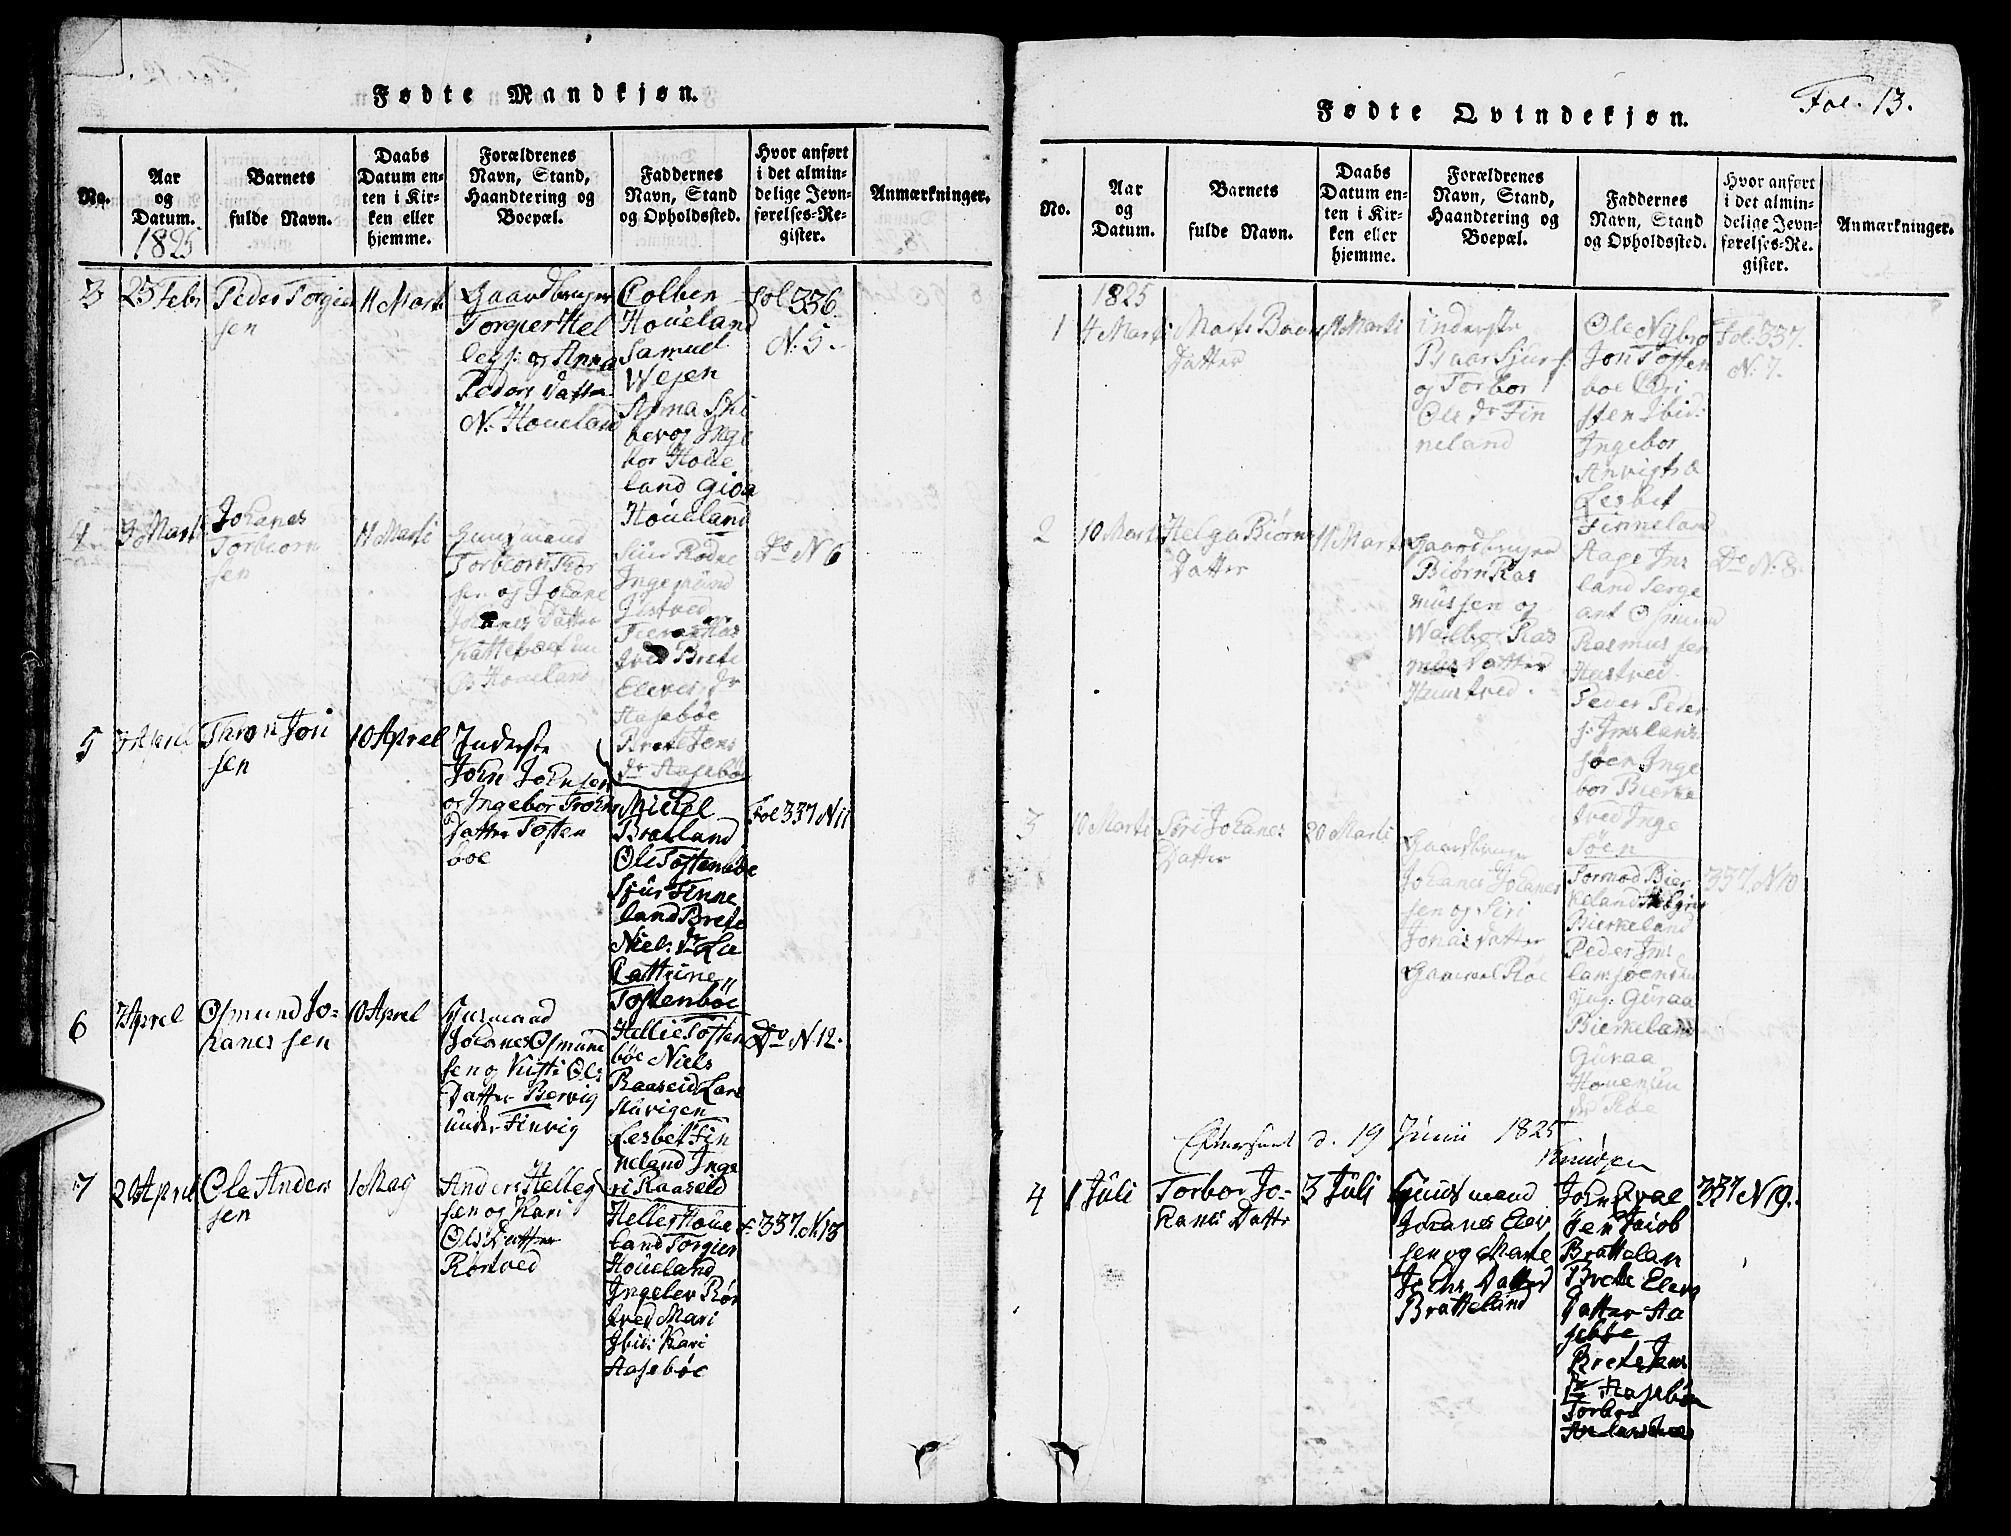 Fødte Mandkjøn.
No.
Aar
og
Datum.
1825
Barnets
fulde Navn.
Daabs
Datum en-
ten i Kir-
ken eller
hjemme.
Forældrenes
Navn, Stand,
Haandtering og
Boepæl.
Faddernes
Navn, Stand
og Opholdssted.
Hvor anført
i det almin-
delige Jevn-
førelses-Re-
gister.
Anmærkninger.
3
25 Febr
Peder Torgier
sen
11 Marti
Gaardbruger
Torgier Hel
legs: og Anna
Peders Datter
N. Houeland
Colben
Houeland
Samuel
Wejen
Anna Ski
bevog Inge
bor Houe
land Gioa
Houeland
Fol 336.
N. 5.
4
9 Marti
Johanes
Torbiorn
sen
11 Marti
Huusmand
Torbiorn Thor
sen og Johane
Johanes Datter
Houeland
Siur Rodne
Ingemund
Ilstved
Brete
Elevs dr
Aasebøe
Brete Jens
dr Aasebø
Do N 6
5
3 Aprel
Thron Jon
sen
10 Aprel
Inderste
John Johnsen
og Ingebor Trohns
Datter Tosten
boe
Michel
Brateland
Ole Tostenboe
Sjur Finne
land Brete
Niels Dr La
Cattrine
Tostenboe
Fol 337 N 11
6
7 Aprel
Osmund Jo-
hanessen
10 Aprel
Husmand
Johanes Osmund
sen og Kirsti Ols
Datter Bervig
under Finvig
Hellie Tosten
bøe Niels
Raaseid Lars
Stuvigen
Lesbet Fin
neland Inge
ri Raaseid
Do N. 12.
7
20 Aprel
Ole Anders
sen
1 May
Anders Helleg
sen og Kari
Ols Datter
Rørtved
Helle Houe
land Torgier
Houeland
Ingelev Rør
tved Mari
Ibid: Kari
Aasebøe
F. 337. N 13
Fol. 13.
Fødte Qvindekjøn.
No.
Aar
og
Datum.
Barnets
fulde Navn.
Daabs
Datum en-
ten i Kir-
ken eller
hjemme.
Forældrenes
Navn, Stand,
Haandtering og
Boepæl.
Faddernes
Navn, Stand
og Opholdssted.
Hvor anført
i det almin-
delige Jevn-
førelses-Re-
gister.
Anmærkninger.
1825
1
4 Marti
Marte Baars
Datter
11 Marti
Inderste
Baar Sjurs:
og Torbor
Ols dr Fin
neland
Ole Nybro
Jon Tosten
boe Chri
sten Ibid:
Ingebor
Lesbet
Finneland
Fol: 337.
N. 7.
2
10 Marti
Helga Biørns
Datter
11 Marti
Gaardbruger
Biørn Ras
mussen og
Walbor Ras
mus Datter
Huustved.
Aage Ims
land Terge
Osmund
Rasmussen
Hustved
Peder Peder
s: Imslans
søen Inge
bor Bierke
tved Inge
Søen
Do N. 8.
3
10 Marti
Siri Johanes
Datter
20 Marti
Gaardbruger
Johanes Johanes
sen og Siri
Jonas Datter
Tormod Bier
keland
Bierkeland
Peder Ims
lansøen
Guraa
Bierkeland
Guraa
337. N 10
d. 19 Junii 1825
Knudsen
4
1 Juli
Torbor Jo-
hanes Datter
3 Juli
Huusmand
Johanes Elev
sen og Marte
Johns Datter
Bratteland
Jacob
Brattelan
Brete Elevs
Datter Aa
sebøe
Brete Jens
Dr Aasebøe
Torbor
337 N 19.